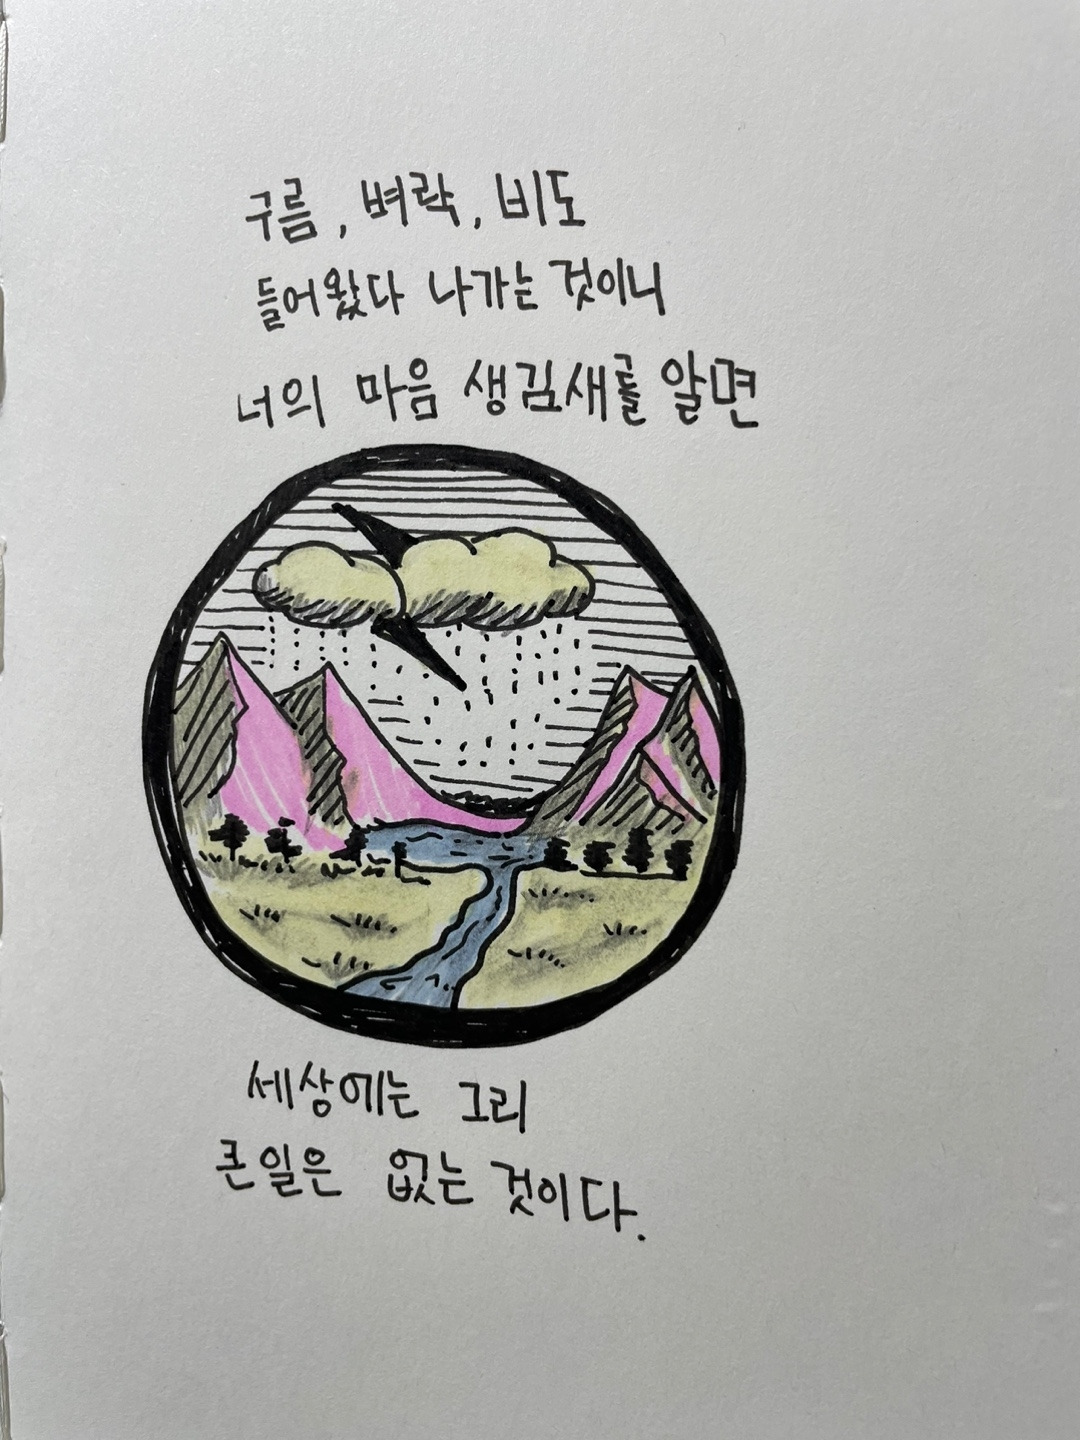 구름, 벼락, 비도
들어왔다 나가는 것이니
너의 마음 생김새를 알면
세상에는 그리
큰일은 없는 것이다.